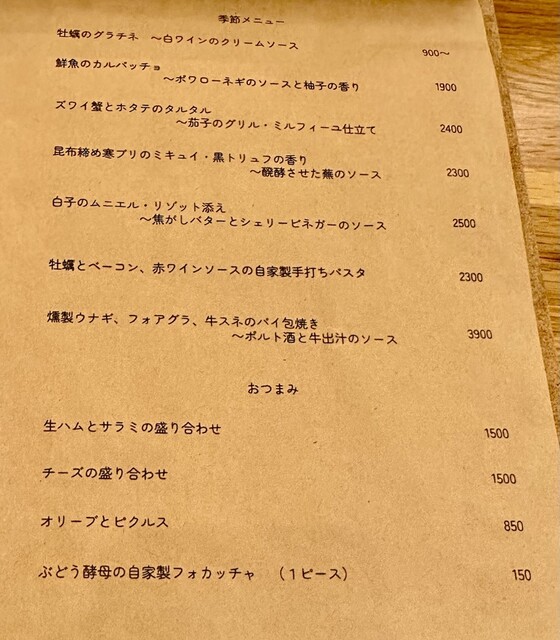 季節メニュー
牡蠣のグラチネ　～白ワインのクリームソース　900～
鮮魚のカルパッチョ
～ポワローネギのソースと柚子の香り　1900
ズワイ蟹とホタテのタルタル
～茄子のグリル・ミルフィーユ仕立て　2400
昆布締め寒ブリのミキュイ・黒トリュフの香り
～醗酵させた蕪のソース　2300
白子のムニエル・リゾット添え
～焦がしバターとシェリービネガーのソース　2500
牡蠣とベーコン、赤ワインソースの自家製手打ちパスタ　2300
燻製ウナギ、フォアグラ、牛スネのパイ包焼き
～ポルト酒と牛出汁のソース　3900
おつまみ
生ハムとサラミの盛り合わせ　1500
チーズの盛り合わせ　1500
オリーブとピクルス　850
ぶどう酵母の自家製フォカッチャ　（１ピース）　150